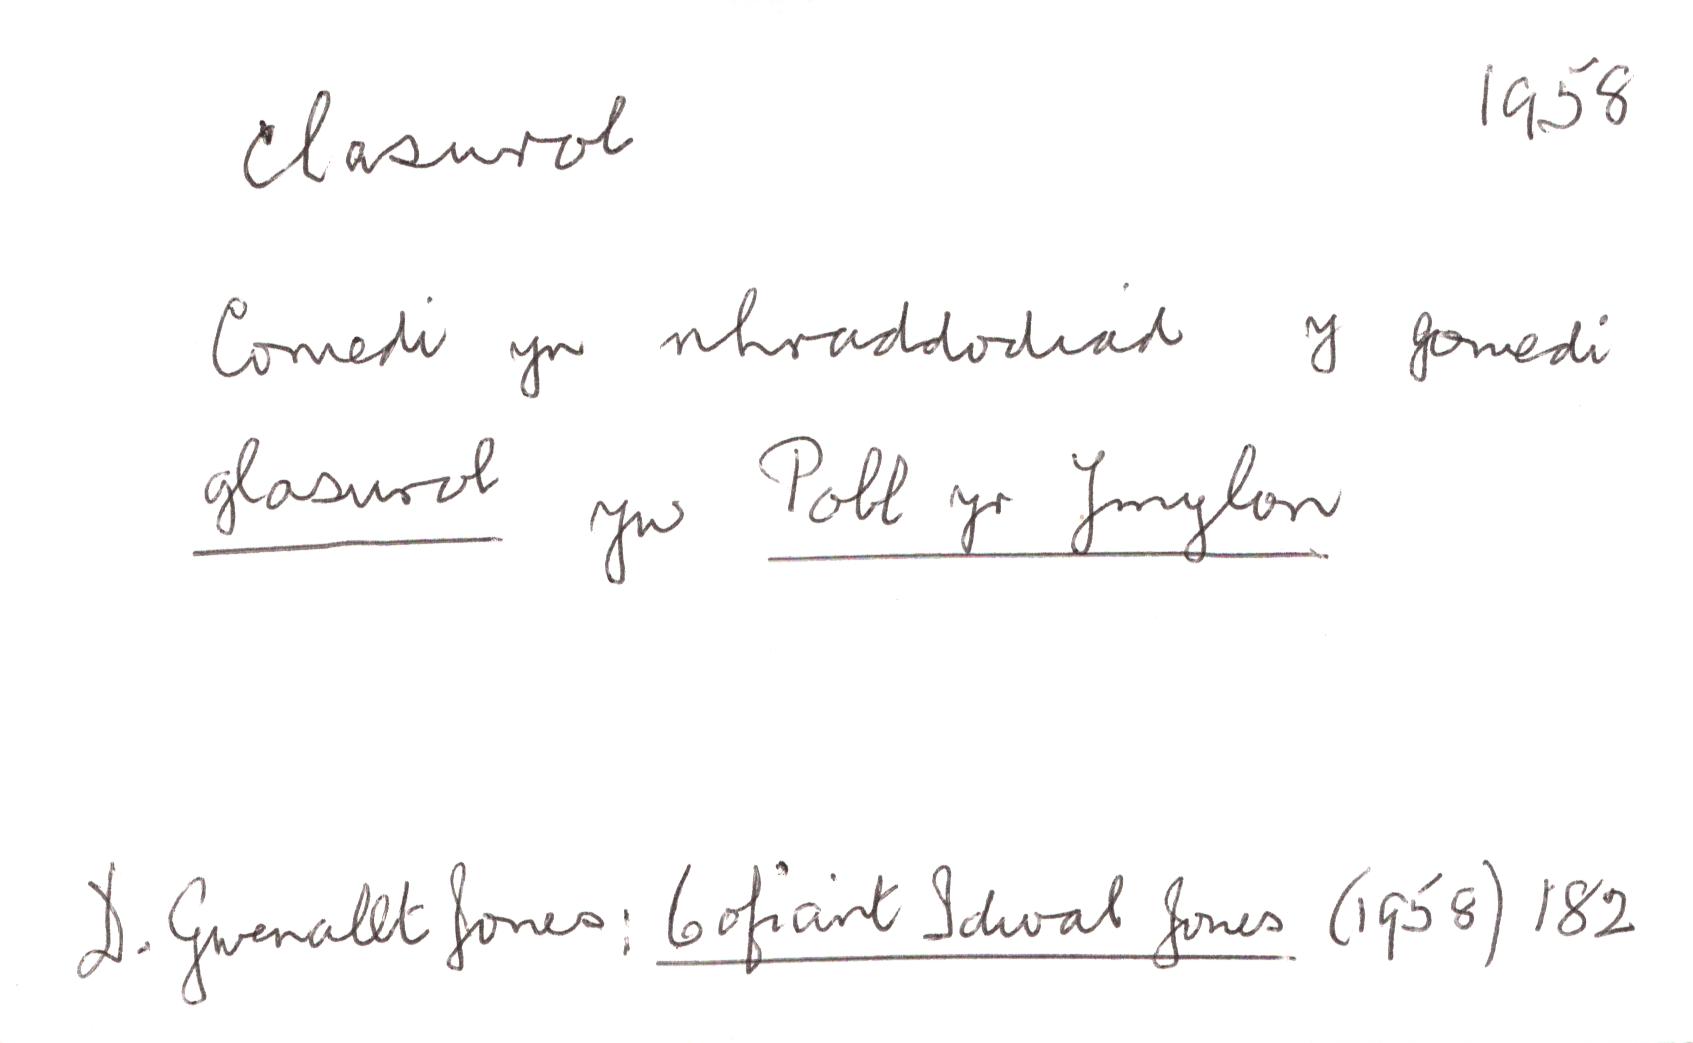 clasurol 1958
Comedi yn nhraddodiad y gomedi
glasurol yw Pobl yr Ymylon
D. Gwenallt Jones: Cofiant Idwal Jones (1958) 182